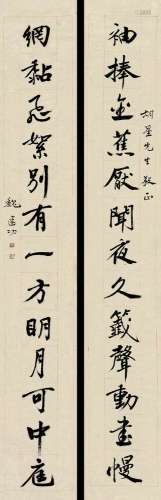 袖捧金蕉厭聞夜久籤聲動畫幔
胡星先生教正
網黏飛絮別有一方明月可中庭
魏建功